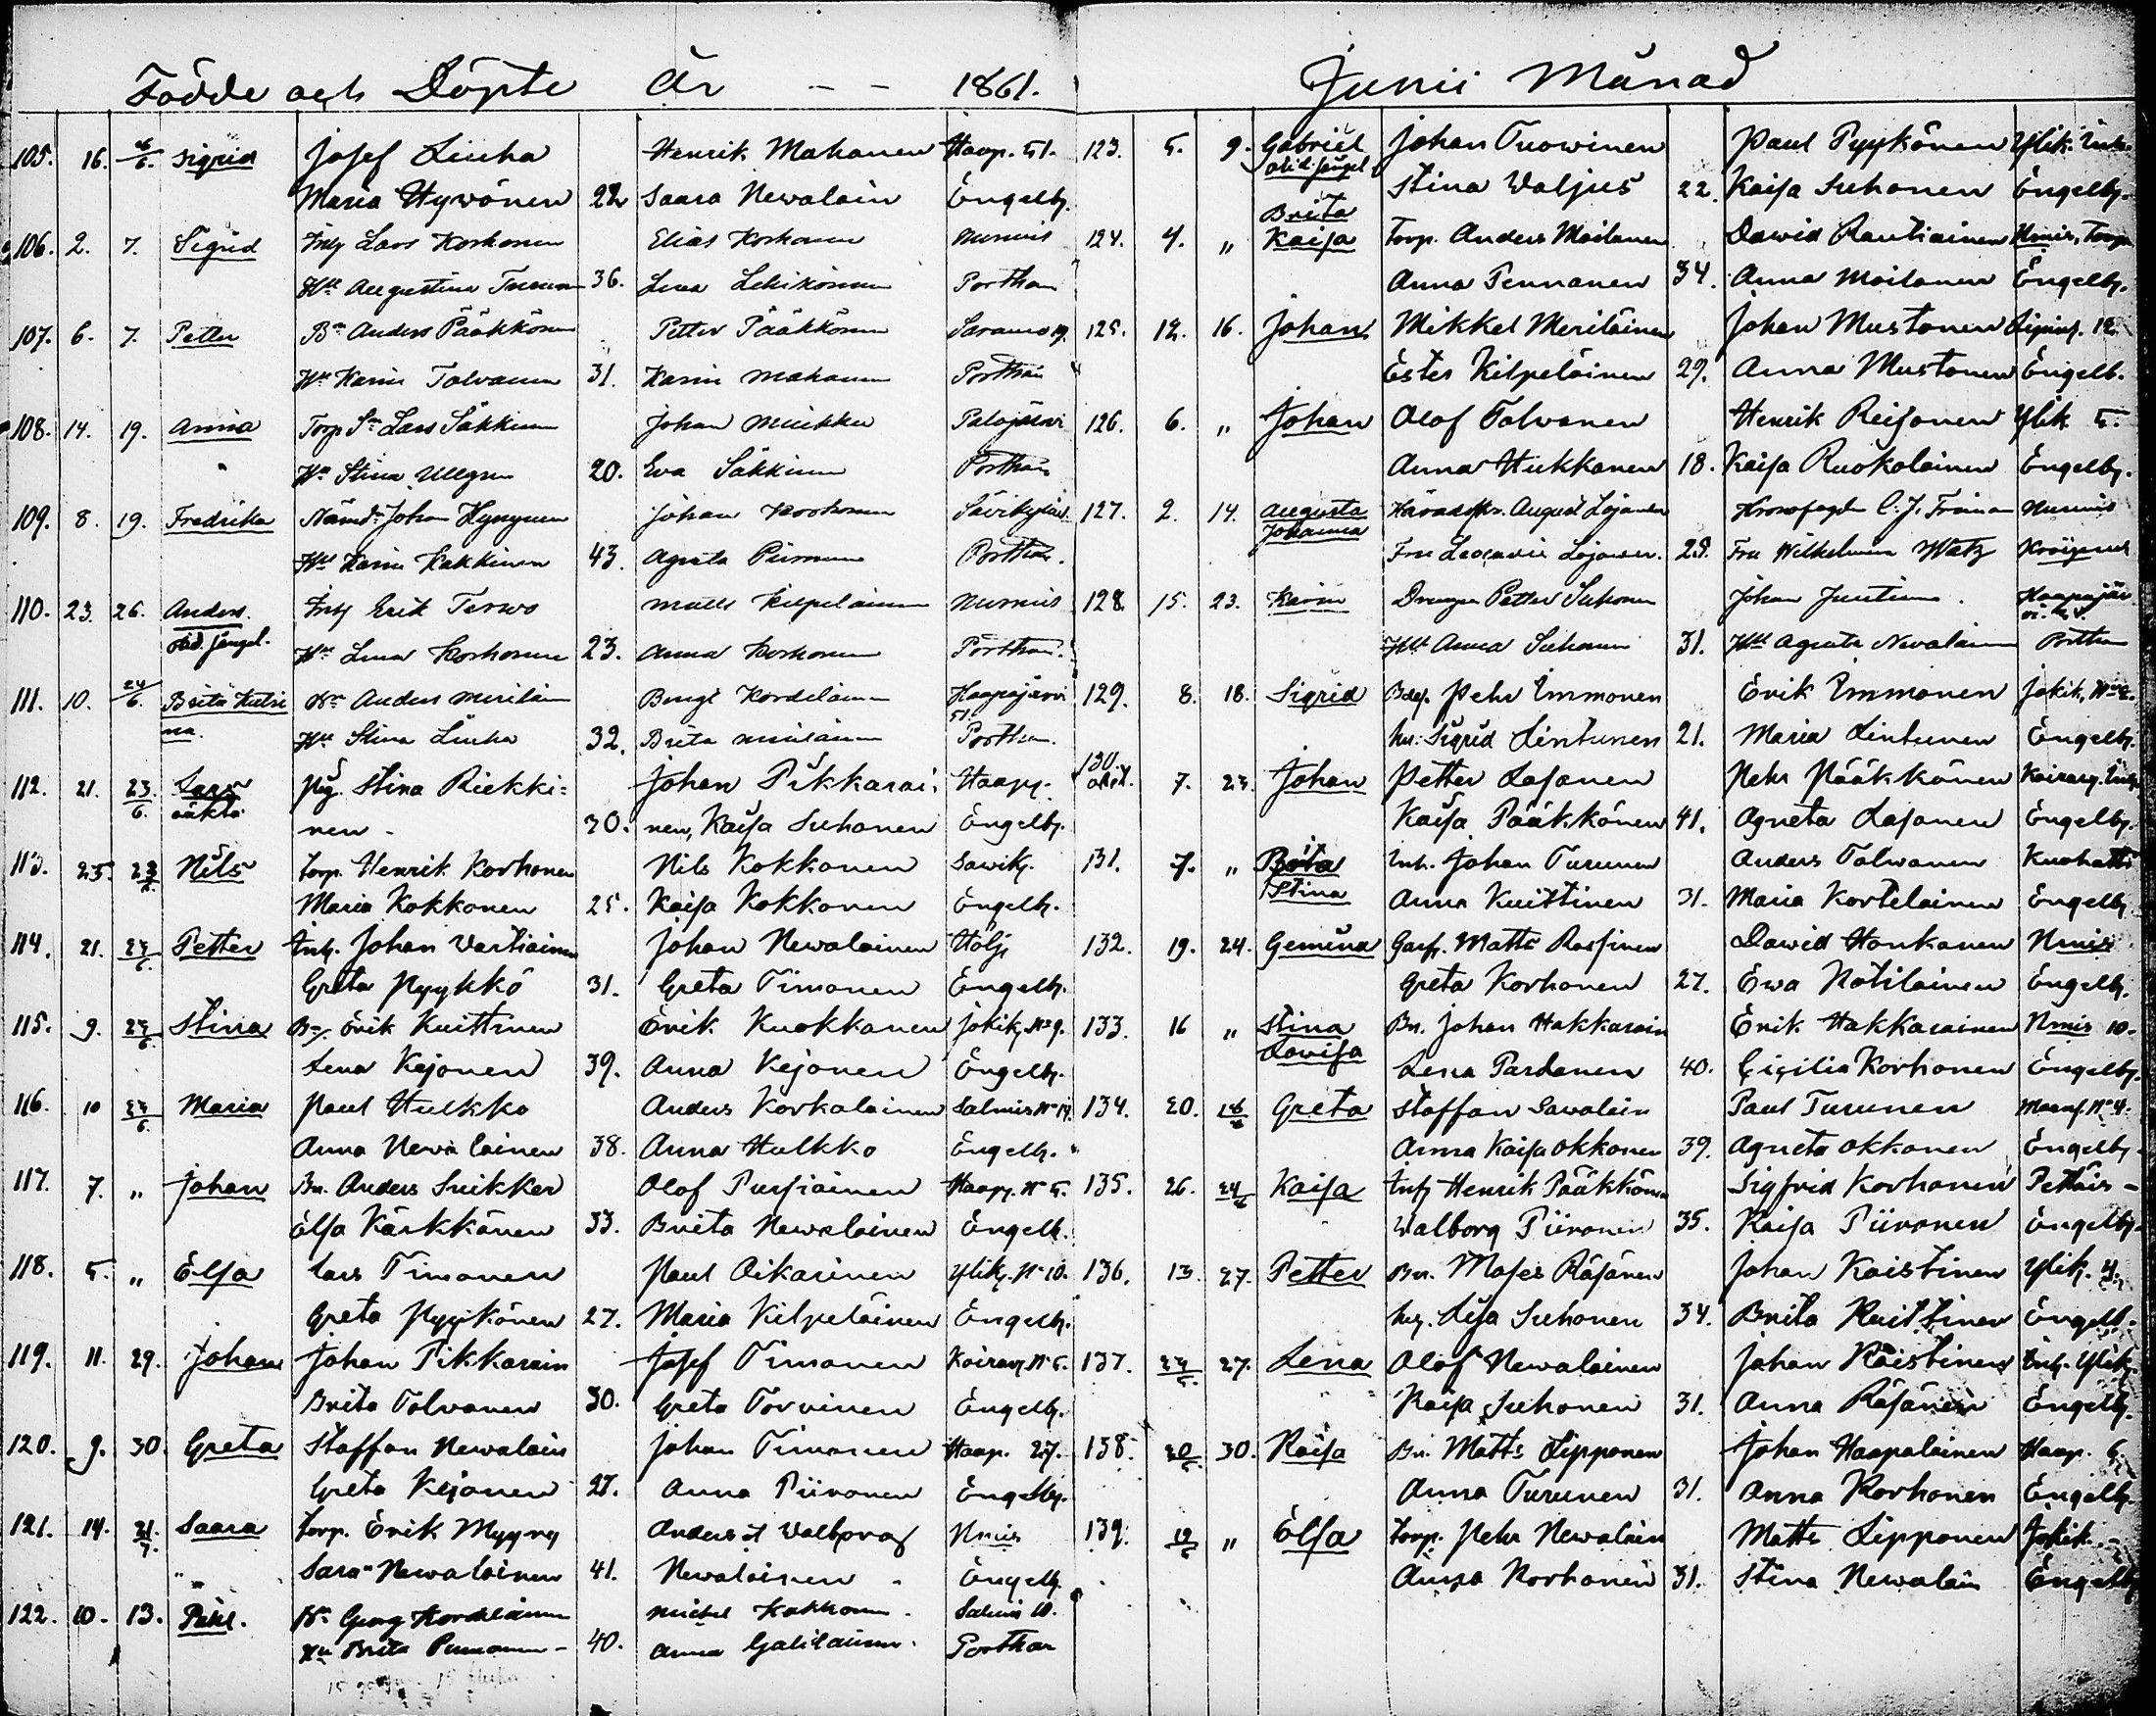 Födde och Döpte År - - 1861.
105. 16. 26/6. Sigrid Josef Liuha Henrik Mahonen Haap. 51.
Maria Hyvönen 22 Saara Newalain Engelb.
106. 2. 7. Sigrid Inh Lars Korhonen Elias Korhonen Nurmis
Hu Augustina Turunen 36. Lena Leskinen Porthan
107. 6. 7. Petter Bn Anders Pääkkönen Petter Pääkkönen Saramo 19.
Hu Karin Tolvanen 31. Karin Mahonen Porthan
108. 14. 19. Anna Torp Sn Lars Säkkinen Johan Muikku Palojärvi
Hu Stina Ullgren 20. Eva Säkkinen Porthan
109. 8. 19. Fredrika Nämd. Johan Hynynen Johan Korhonen
Hu Karin Kakkinen 43. Agneta Piironen Porthan.
110. 23. 26. Anders. Inh Erik Terwo Matts Kilpeläinen Nurmis
oäd. fängel. Hu Lena Korhonen 23. Anna Korhonen Porthan.
111. 10. 24/6. Brita Katri Bn Anders Meriläin Bengt Kordelainen Haapajärvi 51.
na. Hu Stina Liuha 32. Brita Meriläinen Porthan.
112. 21. 23/6. Lars Pig. Stina Riekki= Johan Pikkarai= Haapj.
oäkta nen - 30. nen, Kaisa Suhonen Engelb.
113. 25. 23/6. Nils Torp. Henrik Korhonen Nils Kokkonen Sawik.
Maria Kokkonen 25. Kaisa Kokkonen Engelb.
114. 21. 24/6. Petter Inh. Johan Vartiainen Johan Newalainen Höljs
Greta Pyykkö 31. Greta Timonen Engelb.
115. 9. 24/6. Stina Bn. Erik Kuittinen Erik Kuokkanen Jokik. No 9.
Lena Kejonen 39. Anna Kejonen Engelb.
116. 10 24/6. Maria Paul Hulkko Anders Korkalainen Salmis No 14.
Anna Newalainen 38. Anna Hulkko Engelb.
117. 7. " Johan Bn. Anders Suikker Olof Pursiainen Haapj. No 5.
Elsa Kärkkänen 33. Brita Newalainen Engelb.
118. 5. " Elsa Lars Timonen Paul Oikarinen Ylik. No 10.
Greta Pyykönen 27. Maria Kilpeläinen Engelb.
119. 11. 29. Johan Johan Pikkarain Josef Timonen Koirav. No 5.
Brita Tolvanen 30. Greta Torvinen Engelb.
120. 9. 30. Greta Staffan Newalain Johan Timonen Haap. 27.
Greta Kejonen 27. Anna Piironen Engelb.
121. 14. 21/7. Saara Torp. Erik Myyry Anders & Walborg Nmis
Sara Newalainen 41. Newalainen - Engelb.
122. 10. 13. Pehr. Bn Georg Kordelainen Michel Kokkonen Salmis 10.
Hu Brita Pennanen - 40. Anna Galilainen. Porthan
Junii Månad
123. 5. 9. Gabriel Johan Tuowinen Paul Pyykönen Ylik. Inh.
Stina Valjus 22. Kaisa Suhonen Engelb.
124. 4. " Brita Kaisa Torp. Anders Moilanen Dawid Rautiainen Nmis, Torp.
Anna Pennanen 34. Anna Moilanen Engelb.
125. 12. 16. Johan Mikkel Meriläinen Johan Mustonen Lipinl. 12.
Ester Kilpeläinen 29. Anna Mustonen Engelb.
126. 6. " Johan Olof Tolvanen Henrik Reijonen Ylik. 5.
Anna Hukkanen 18. Kaisa Ruokolainen Engelb.
127. 2. 14. Augusta August Lojander Kronofogden C. J. Nurmis
Johanna Fru Lojander. 28. Fru Wilhelmina Watz
128. 15. 23. Karin Drengen Petter Suhonen Johan Juntunen. Haapajär
Hu Anna Suhonen 31. Hu Agneta Newalainen Porthan
129. 8. 18. Sigrid Pehr Immonen Erik Immonen Jokik.
hu. Sigrid Lintunen 21. Maria Lintunen Engelb.
130. 7. 23. Johan Petter Lasonen Pehr Pääkkönen Koirav. Inh.
Kaisa Pääkkönen 41. Agneta Lasonen Engelb.
131. 7. " Brita Inh. Johan Turunen Anders Tolwanen Kuohatti
Stina Anna Kuittinen 31. Maria Kortelainen Engelb.
132. 19. 24. Gemina Garf. Matts Rossinen Dawid Honkanen Nmis
Greta Korhonen 27. Ewa Nötilainen Engelb.
133. 16 " Stina Bn. Johan Hakkarain Erik Hakkarainen Nmis 10.
Lovisa Lena Pardanen 40. Cicilia Korhonen Engelb.
134. 20. Greta Staffan Sawolain Paul Turunen No 4.
Anna Kaisa Okkonen 39. Agneta Okkonen Engelb.
135. 26. 24/6 Kaisa Inh Henrik Pääkkönen Sigfrid Korhonen Pettäis -
Walborg Piironen 35. Kaisa Piironen Engelb.
136. 13. 27. Petter Bn. Moses Räsänen Johan Kaistinen Ylik. 4.
hu. Lisa Suhonen 34. Brita Kuittinen Engelb.
137. 27. Lena Olof Newalainen Johan Räistinen Inh. Ylik.
Kaisa Suhonen 31. Anna Räsänen Engelb.
138. 30. Kaisa Bn. Matts Lipponen Johan Haapalainen Haap. 6.
Anna Turunen 31. Anna Korhonen Engelb.
139. " Elsa Torp. Pehr Newalain Matts Lipponen Jokik.
Anna Korhonen 31. Stina Newalain Engelb